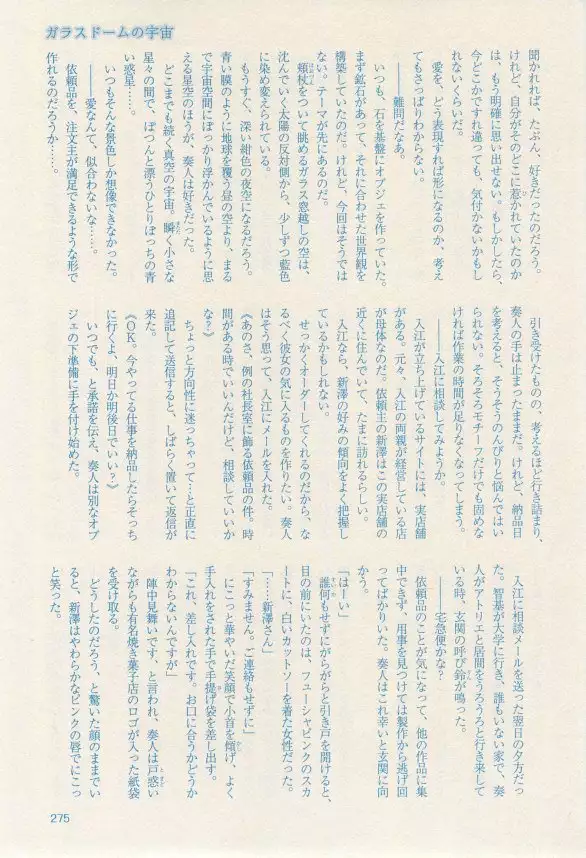 ガラスドームの宇宙
聞かれれば、たぶん、好きだったのだろう。
けれど、自分がそのどこに惹かれていたのか
は、もう明確に思い出せない。もしかしたら、
今どこかですれ違っても、気付かないかもし
れないくらいだ。
愛を、どう表現すれば形になるのか、考え
てもさっぱりわからない。
――難問だなあ。
いつも、石を基盤にオブジェを作っていた。
まず鉱石があって、それに合わせた世界観を
構築していたのだ。けれど、今回はそうでは
ない。テーマが先にあるのだ。
頬杖をついて眺めるガラス窓越しの空は、
沈んでいく太陽の反対側から、少しずつ藍色
に染め変えられている。
もうすぐ、深い紺色の夜空になるだろう。
青い膜のように地球を覆う昼の空より、まる
で宇宙空間にぽっかり浮かんでいるように思
える星空のほうが、奏人は好きだった。
どこまでも続く真空の宇宙。瞬く小さな
星々の間で、ぽつんと漂うひとりぼっちの青
い惑星……。
いつもそんな景色しか想像できなかった。
――愛なんて、似合わないな……。
依頼品を、注文主が満足できるような形で
作れるのだろうか……。
引き受けたものの、考えるほど行き詰まり、
奏人の手は止まったままだ。けれど、納品日
を考えると、そうそうのんびりと悩んではい
られない。そろそろモチーフだけでも固めな
ければ作業の時間が足りなくなってしまう。
――入江に相談してみようか。
入江が立ち上げているサイトには、実店舗
がある。元々、入江の両親が経営している店
が母体なのだ。依頼主の新澤はこの実店舗の
近くに住んでいて、たまに訪れるらしい。
入江なら、新澤の好みの傾向をよく把握し
ているかもしれない。
せっかくオーダーしてくれるのだから、な
るべく彼女の気に入るものを作りたい。奏人
はそう思って、入江にメールを入れた。
《あのさ、例の社長室に飾る依頼品の件。時
間がある時でいいんだけど、相談していいか
な？》
ちょっと方向性に迷っちゃって…と正直に
追記して送信すると、しばらく置いて返信が
来た。
《OK。今やってる仕事を納品したらそっち
に行くよ。明日か明後日でいい？》
いつでも、と承諾を伝え、奏人は別なオブ
ジェの下準備に手を付け始めた。
入江に相談メールを送った翌日の夕方だっ
た。智基が大学に行き、誰もいない家で、奏
人がアトリエと居間をうろうろと行き来して
いる時、玄関の呼び鈴が鳴った。
――宅急便かな？
依頼品のことが気になって、他の作品に集
中できず、用事を見つけては製作から逃げ回
ってばかりいた。奏人はこれ幸いと玄関に向
かう。
「はーい」
誰何もせずにがらがらと引き戸を開けると、
目の前にいたのは、フューシャピンクのスカ
ートに、白いカットソーを着た女性だった。
「……新澤さん」
「すみません。ご連絡もせずに」
にこっと華やいだ笑顔で小首を傾げ、よく
手入れをされた手で手提げ袋を差し出す。
「これ、差し入れです。お口に合うかどうか
わからないんですが」
陣中見舞いです、と言われ、奏人は戸惑い
ながらも有名焼き菓子店のロゴが入った紙袋
を受け取る。
どうしたのだろう、と驚いた顔のままでい
ると、新澤はやわらかなピンクの唇でにこっ
と笑った。
275